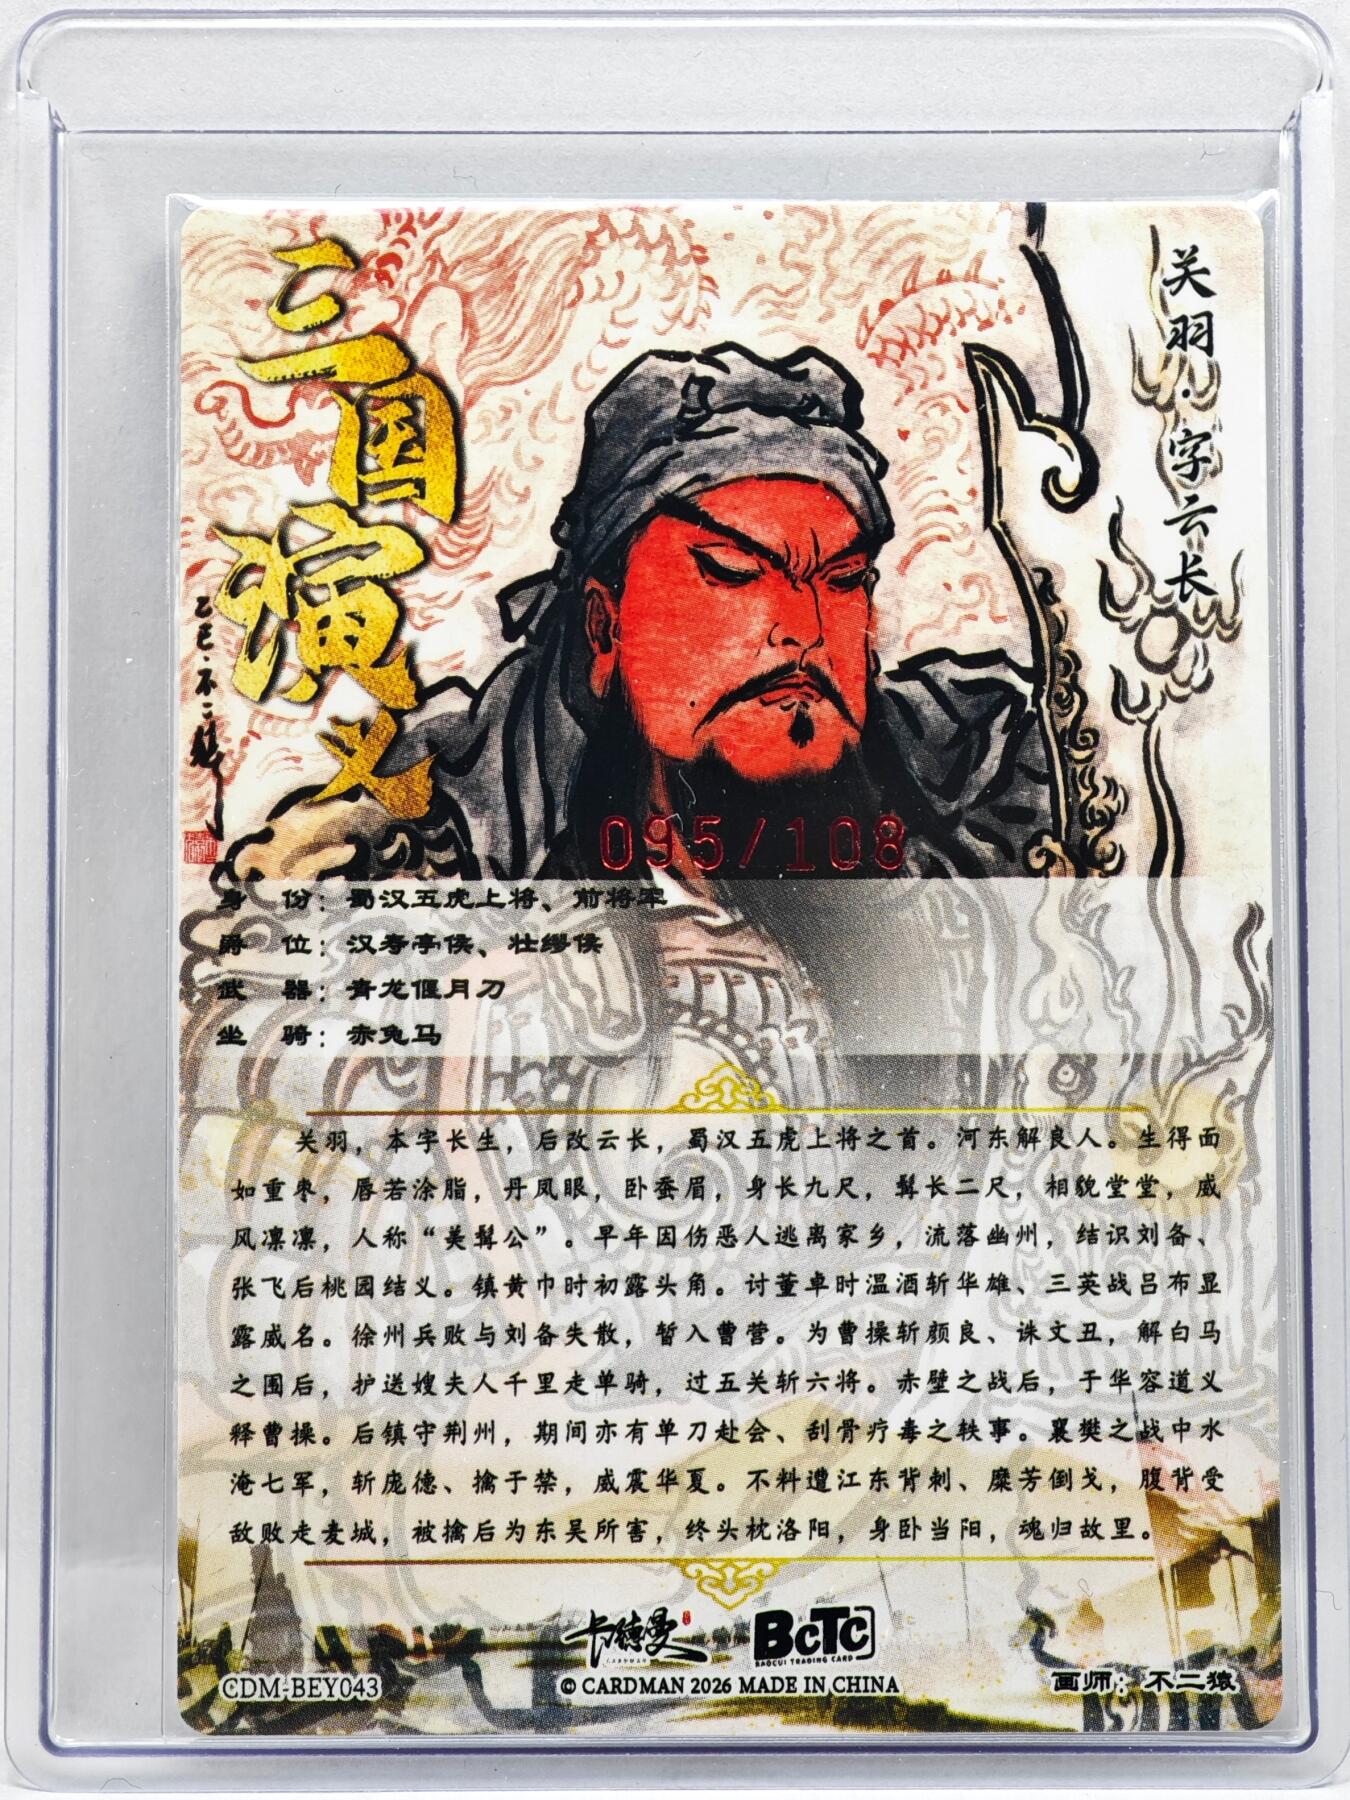 三国演义
乙巳·不二猿
关羽·字云长
095/108
身 份：蜀汉五虎上将、前将军
爵 位：汉寿亭侯、壮缪侯
武 器：青龙偃月刀
坐 骑：赤兔马
关羽，本字长生，后改云长，蜀汉五虎上将之首。河东解良人。生得面
如重枣，唇若涂脂，丹凤眼，卧蚕眉，身长九尺，髯长二尺，相貌堂堂，威
风凛凛，人称“美髯公”。早年因伤恶人逃离家乡，流落幽州，结识刘备、
张飞后桃园结义。镇黄巾时初露头角。讨董卓时温酒斩华雄、三英战吕布显
露威名。徐州兵败与刘备失散，暂入曹营。为曹操斩颜良、诛文丑，解白马
之围后，护送嫂夫人千里走单骑，过五关斩六将。赤壁之战后，于华容道义
释曹操。后镇守荆州，期间亦有单刀赴会、刮骨疗毒之轶事。襄樊之战中水
淹七军，斩庞德、擒于禁，威震华夏。不料遭江东背刺、糜芳倒戈，腹背受
敌败走麦城，被擒后为东吴所害，终头枕洛阳，身卧当阳，魂归故里。
卡德曼
BCTC
BAOCUI TRADING CARD
CDM-BEY043
© CARDMAN 2026 MADE IN CHINA
画师：不二猿